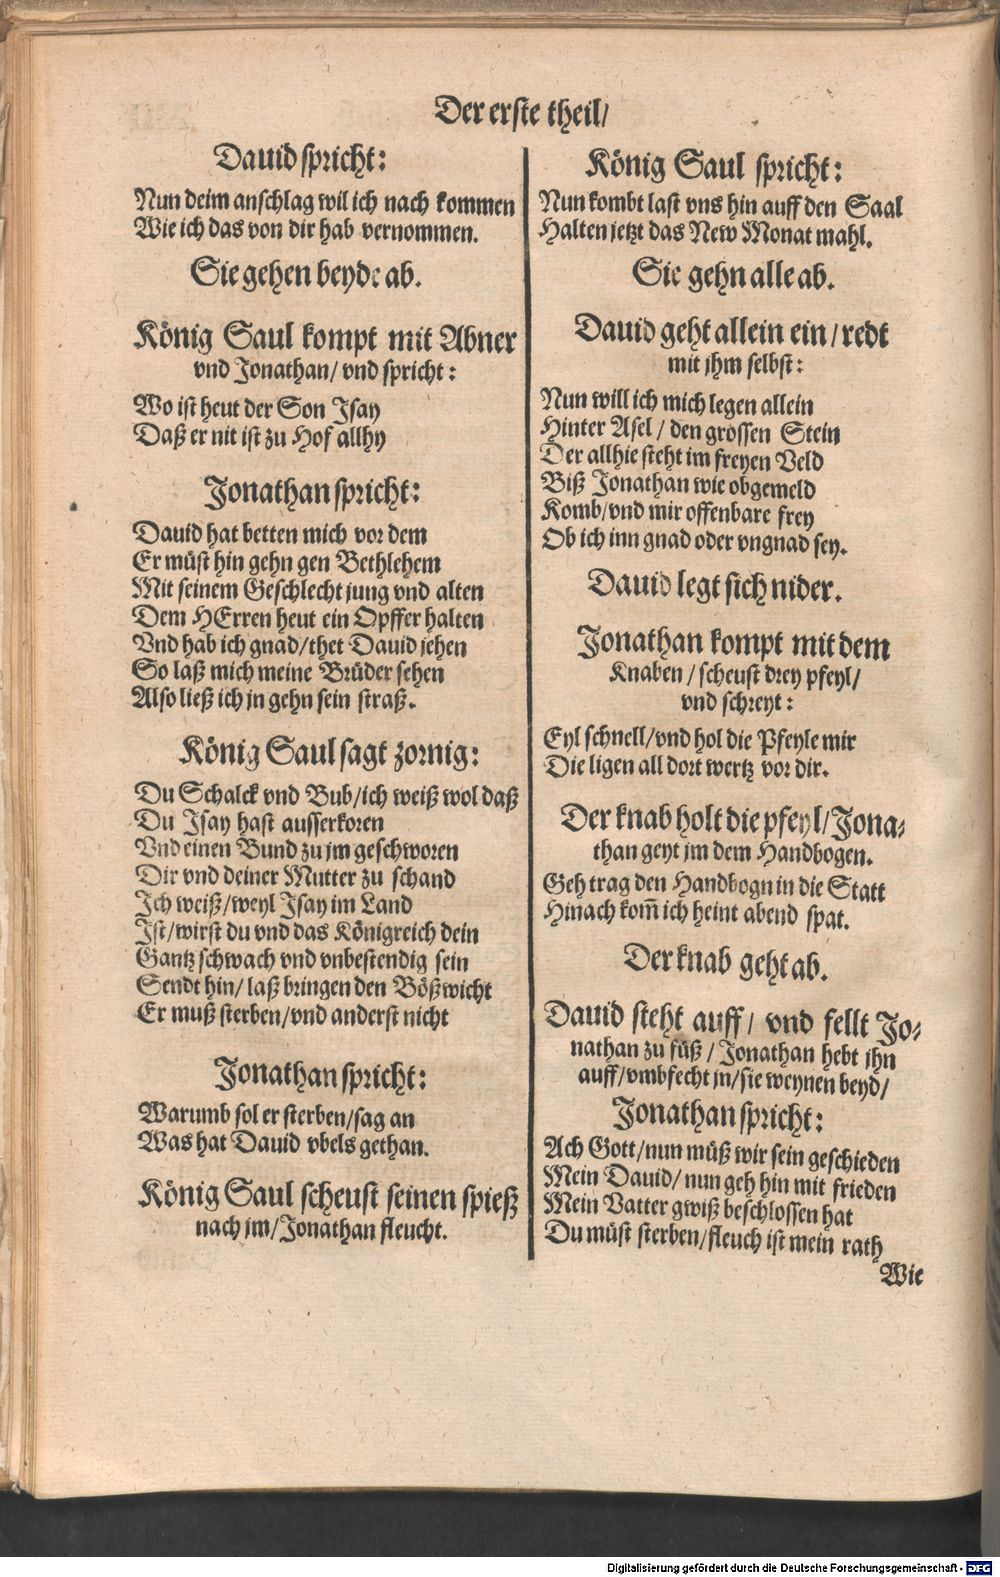 Der erste theil/
Dauid spricht:
Nun deim anschlag wil ich nach kommen
Wie ich das von dir hab vernommen.
Sie gehen beyde ab.
König Saul kompt mit Abner
vnd Jonathan/ vnd spricht:
Wo ist heut der Son Jsay
Daß er nit ist zu Hof allhy
Jonathan spricht:
Dauid hat betten mich vor dem
Er müst hin gehn gen Bethlehem
Mit seinem Geschlecht jung vnd alten
Dem HErren heut ein Opffer halten
Vnd hab ich gnad/thet Dauid jehen
So laß mich meine Brüder sehen
Also ließ ich jn gehn sein straß.
König Saul sagt zornig:
Du Schalck vnd Bub/ich weiß wol daß
Du Jsay hast ausserkoren
Vnd einen Bund zu jm geschworen
Dir vnd deiner Mutter zu schand
Jch weiß/weyl Jsay im Land
Jst/wirst du vnd das Königreich dein
Gantz schwach vnd vnbestendig sein
Sendt hin/ laß bringen den Bößwicht
Er muß sterben/vnd anderst nicht
Jonathan spricht:
Warumb sol er sterben/sag an
Was hat Dauid vbels gethan.
König Saul scheust seinen spieß
nach jm/Jonathan fleucht.
König Saul spricht:
Nun kombt last vns hin auff den Saal
Halten jetzt das New Monat mahl.
Sie gehn alle ab.
Dauid geht allein ein/ redt
mit jhm selbst:
Nun will ich mich legen allein
Hinter Asel/ den grossen Stein
Der allhie steht im freyen Veld
Biß Jonathan wie obgemeld
Komb/vnd mir offenbare frey
Ob ich inn gnad oder vngnad sey.
Dauid legt sich nider.
Jonathan kompt mit dem
Knaben/ scheust drey pfeyl/
vnd schreyt:
Eyl schnell/vnd hol die Pfeyle mir
Die ligen all dort wertz vor dir.
Der knab holt die pfeyl/Jona⸗
than geyt jm dem Handbogen.
Geh trag den Handbogn in die Statt
Hinach kom̃ ich heint abend spat.
Der knab geht ab.
Dauid steht auff/ vnd fellt Jo⸗
nathan zu füß/ Jonathan hebt jhn
auff/vmbfecht jn/sie weynen beyd/
Jonathan spricht:
Ach Gott/nun müß wir sein geschieden
Mein Dauid/ nun geh hin mit frieden
Mein Vatter gwiß beschlossen hat
Du müst sterben/fleuch ist mein rath
Wie
Digitalisierung gefördert durch die Deutsche Forschungsgemeinschaft - DFG